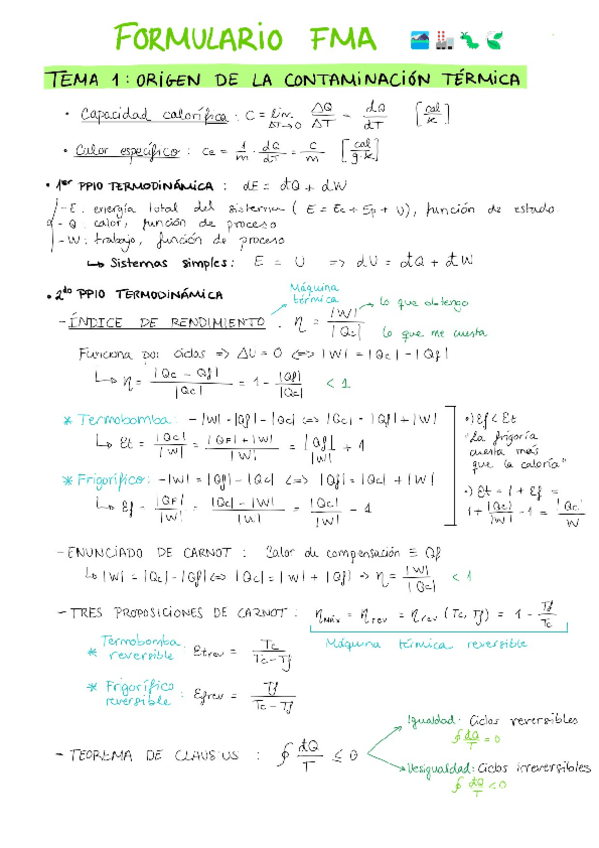 FORMULARIO FMA
TEMA 1: ORÍGEN DE LA CONTAMINACIÓN TÉRMICA
• Capacidad calorífica: C = lim ΔT→0 ΔQ/ΔT = đQ/dT [cal/K]
• Calor específico: Ce = 1/m · đQ/dT = C/m [cal/g·K]
• 1er PPIO TERMODINÁMICA: dE = đQ + đW
- E: energía total del sistema (E = Ec + Ep + U), función de estado
- Q: calor, función de proceso
- W: trabajo, función de proceso
↳ Sistemas simples: E = U => dU = đQ + đW
• 2do PPIO TERMODINÁMICA
- ÍNDICE DE RENDIMIENTO: η = |W|/|Qc|
Máquina térmica
lo que obtengo
lo que me cuesta
Funciona por ciclos => ΔU = 0 <=> |W| = |Qc| - |Qf|
↳ η = |Qc - Qf|/|Qc| = 1 - |Qf|/|Qc| < 1
* Termobomba: -|W| = |Qf| - |Qc| <=> |Qc| = |Qf| + |W|
↳ Et = |Qc|/|W| = (|Qf| + |W|)/|W| = |Qf|/|W| + 1
* Frigorífico: -|W| = |Qf| - |Qc| <=> |Qf| = |Qc| + |W|
↳ Ef = |Qf|/|W| = (|Qc| - |W|)/|W| = |Qc|/|W| - 1
•) Ef < Et
"La frigoría
cuesta más
que la caloría"
•) Et = 1 + Ef =
1 + |Qc|/|W| - 1 = |Qc|/W
- ENUNCIADO DE CARNOT: Calor de compensación ≡ Qf
↳ |W| = |Qc| - |Qf| <=> |Qc| = |W| + |Qf| => η = |W|/|Qc| < 1
- TRES PROPOSICIONES DE CARNOT: ηmáx = ηrev = ηrev (Tc, Tf) = 1 - Tf/Tc
Máquina térmica reversible
* Termobomba reversible: Etrev = Tc/(Tc - Tf)
* Frigorífico reversible: Efrev = Tf/(Tc - Tf)
- TEOREMA DE CLAUSIUS: ∮ đQ/T ≤ 0
Igualdad: Ciclos reversibles
∮ đQ/T = 0
Desigualdad: Ciclos irreversibles
∮ đQ/T < 0